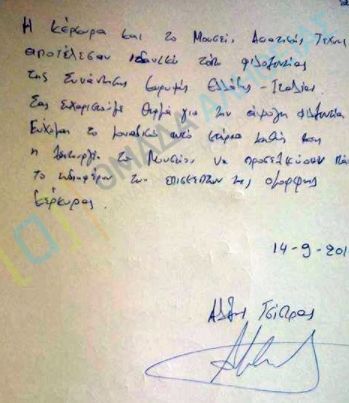 Η Κέρκυρα και το Μουσείο Ασιατικής Τέχνης
αποτέλεσαν ιδανικό τόπο φιλοξενίας
της Συνάντησης Κορυφής Ελλάδας - Ιταλίας.
Σας ευχαριστούμε θερμά για την άψογη φιλοξενία
Εύχομαι το μοναδικό αυτό κτίριο καθώς και
η λειτουργία του Μουσείου να προσελκύσουν
το ενδιαφέρον των επισκεπτών της όμορφης
Κέρκυρας.
14-9-201
Αλέξης Τσίπρας
ΟΜΑΔΑ